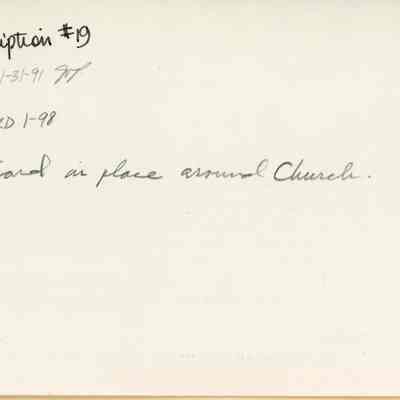 iption #19
1-31-91
RD 1-98
oard in place around Church.